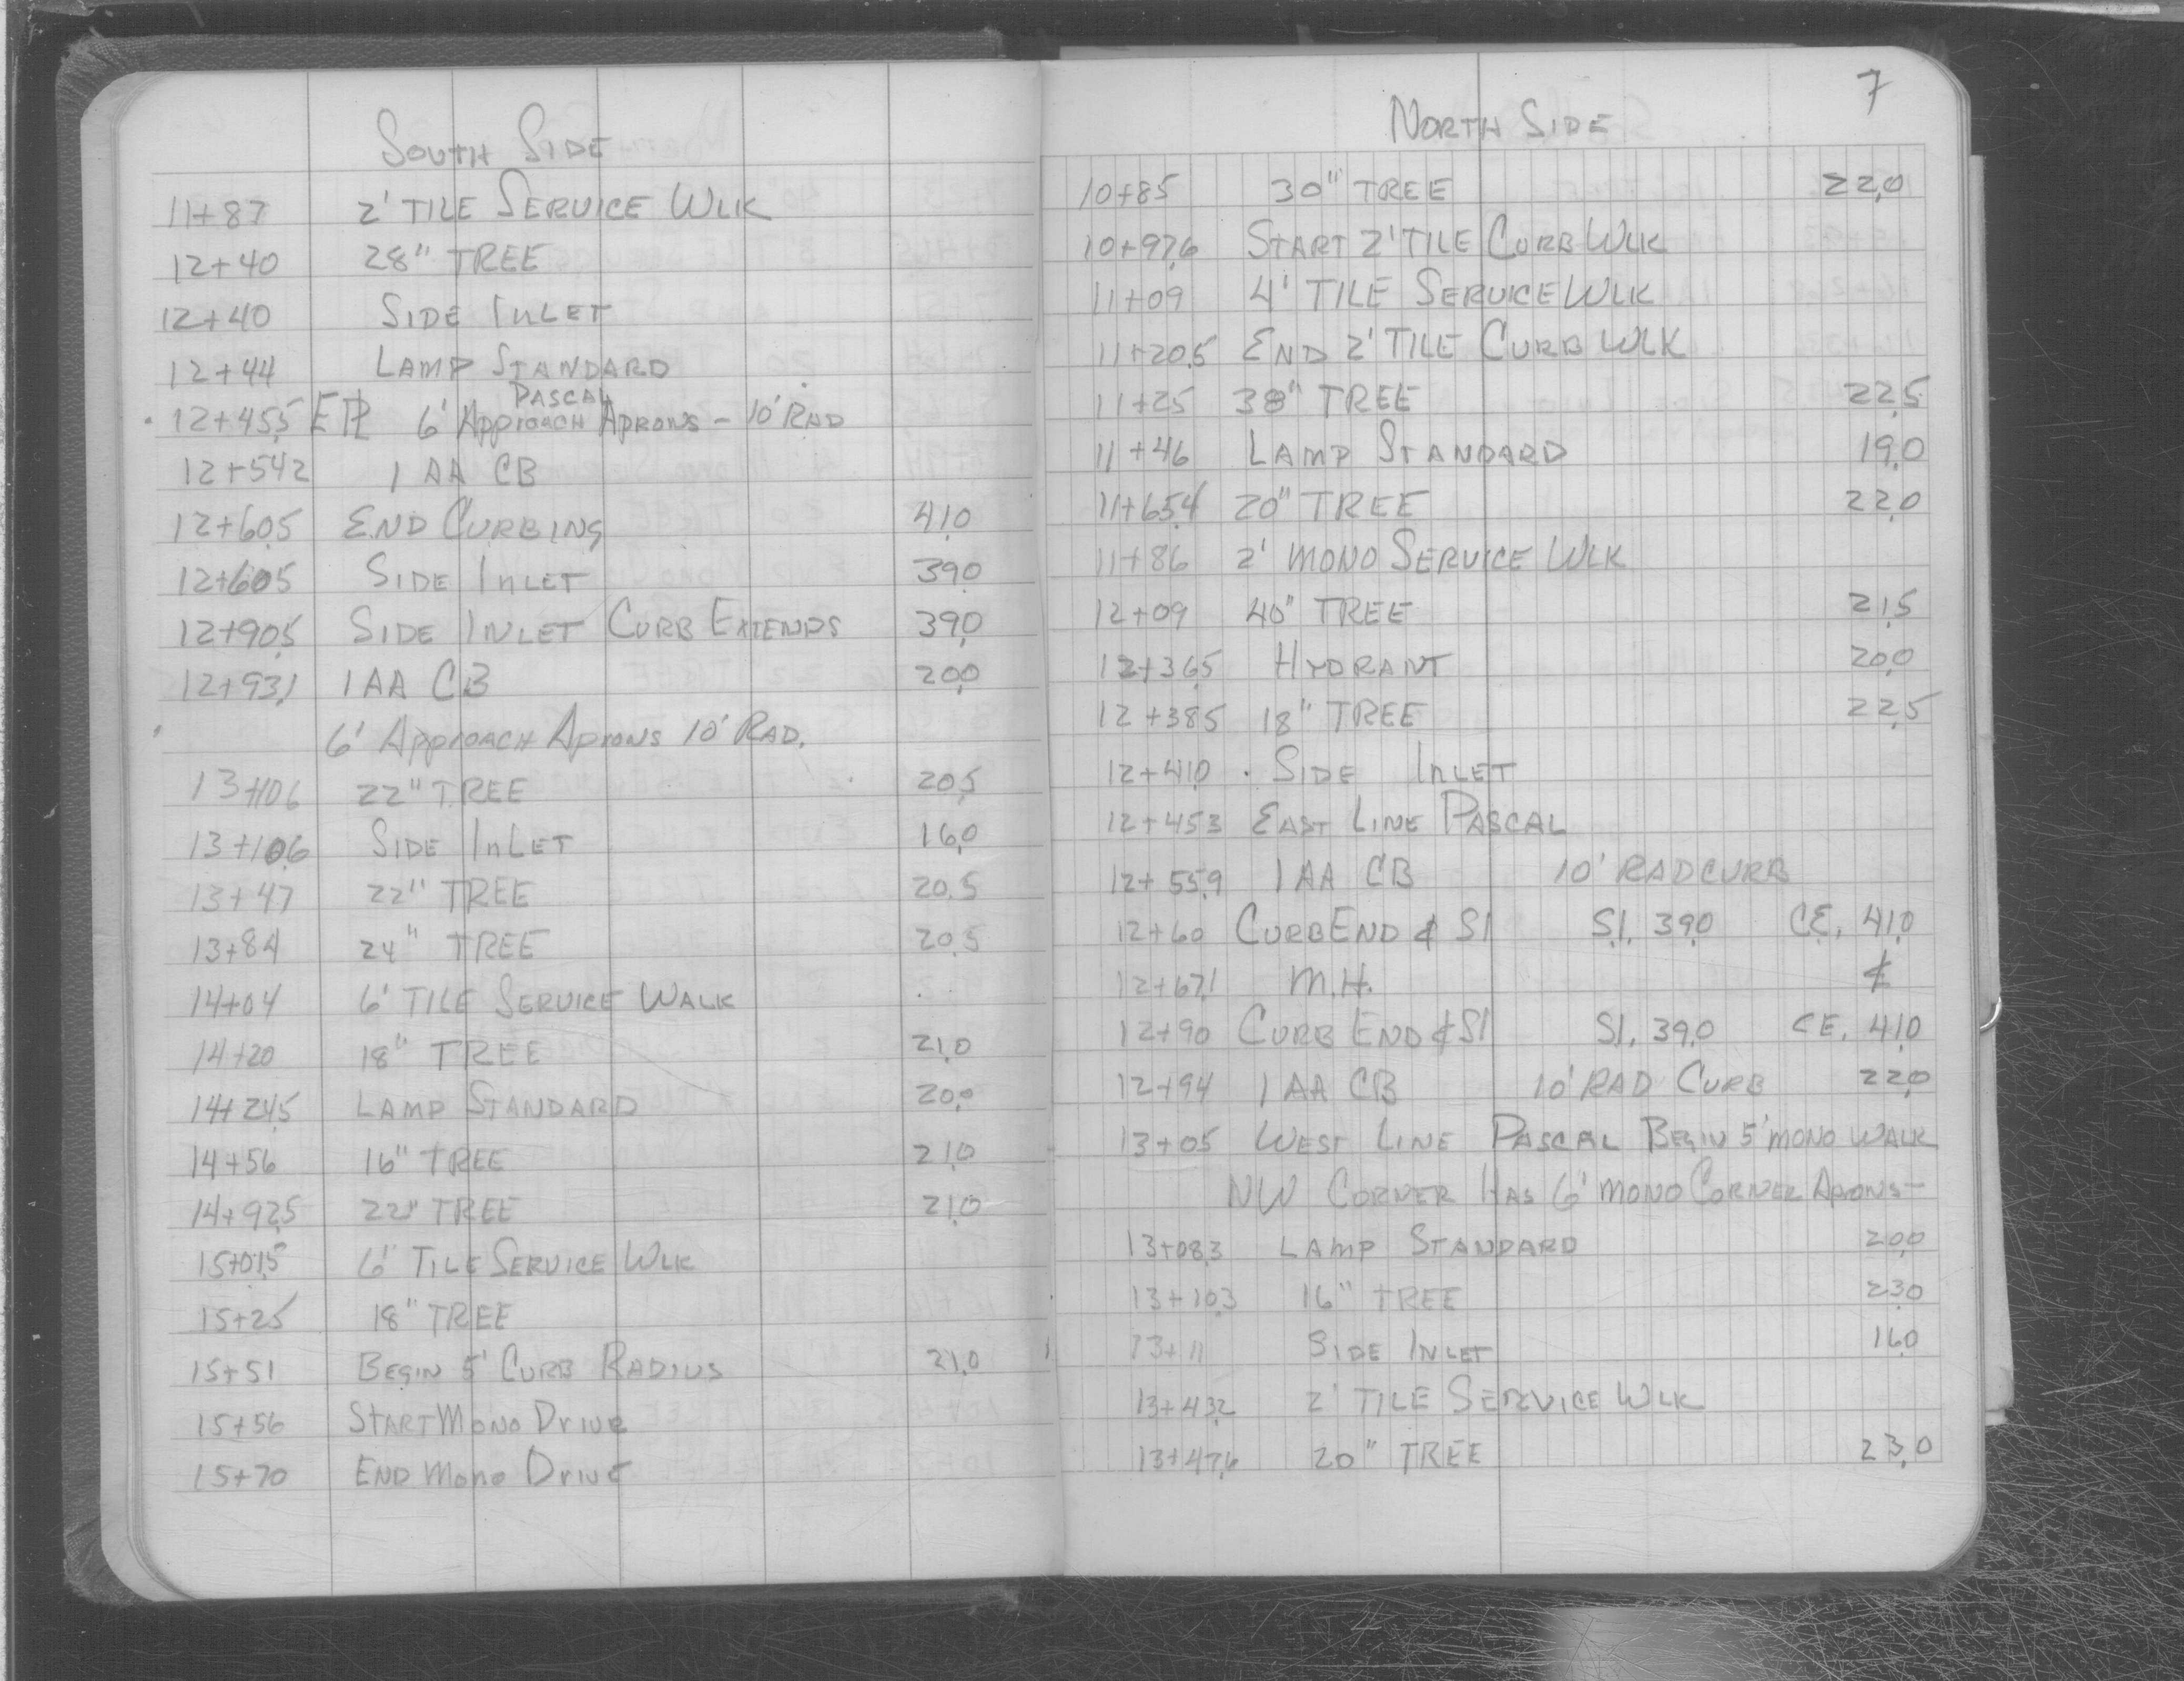 South Side
11+87 2' Tile Service Wlk
12+40 28" Tree
12+40 Side Inlet
12+44 Lamp Standard
Pascal
12+45.5 E PL 6' Approach Aprons - 10' Rad
12+54.2 1 AA CB
12+60.5 End Curbing 41.0
12+60.5 Side Inlet 39.0
12+90.5 Side Inlet Curb Extends 39.0
12+93.1 1 AA CB 20.0
6' Approach Aprons 10' Rad.
13+10.6 22" Tree 20.5
13+10.6 Side Inlet 16.0
13+47 22" Tree 20.5
13+84 24" Tree 20.5
14+04 6' Tile Service Walk
14+20 18" Tree 21.0
14+24.5 Lamp Standard 20.0
14+56 16" Tree 21.0
14+92.5 22" Tree 21.0
15+01.5 6' Tile Service Wlk
15+25 18" Tree
15+51 Begin 5' Curb Radius 21.0
15+56 Start Mono Drive
15+70 End Mono Drive
7
North Side
10+85 30" Tree 22.0
10+97.6 Start 2' Tile Curb Wlk
11+09 4' Tile Service Wlk
11+20.5 End 2' Tile Curb Wlk
11+25 38" Tree 22.5
11+46 Lamp Standard 19.0
11+65.4 20" Tree 22.0
11+86 2' Mono Service Wlk
12+09 40" Tree 21.5
12+36.5 Hydrant 20.0
12+38.5 18" Tree 22.5
12+41.0 Side Inlet
12+45.3 East Line Pascal
12+55.9 1 AA CB 10' Rad Curb
12+60 Curb End & SI S.I. 39.0 C.E. 41.0
12+67.1 M.H. ₵
12+90 Curb End & SI S.I. 39.0 C.E. 41.0
12+94 1 AA CB 10' Rad Curb 22.0
13+05 West Line Pascal Begin 5' Mono Walk
NW Corner Has 6' Mono Corner Aprons-
13+08.3 Lamp Standard 20.0
13+10.3 16" Tree 23.0
13+11 Side Inlet 16.0
13+43.2 2' Tile Service Wlk
13+47.6 20" Tree 23.0